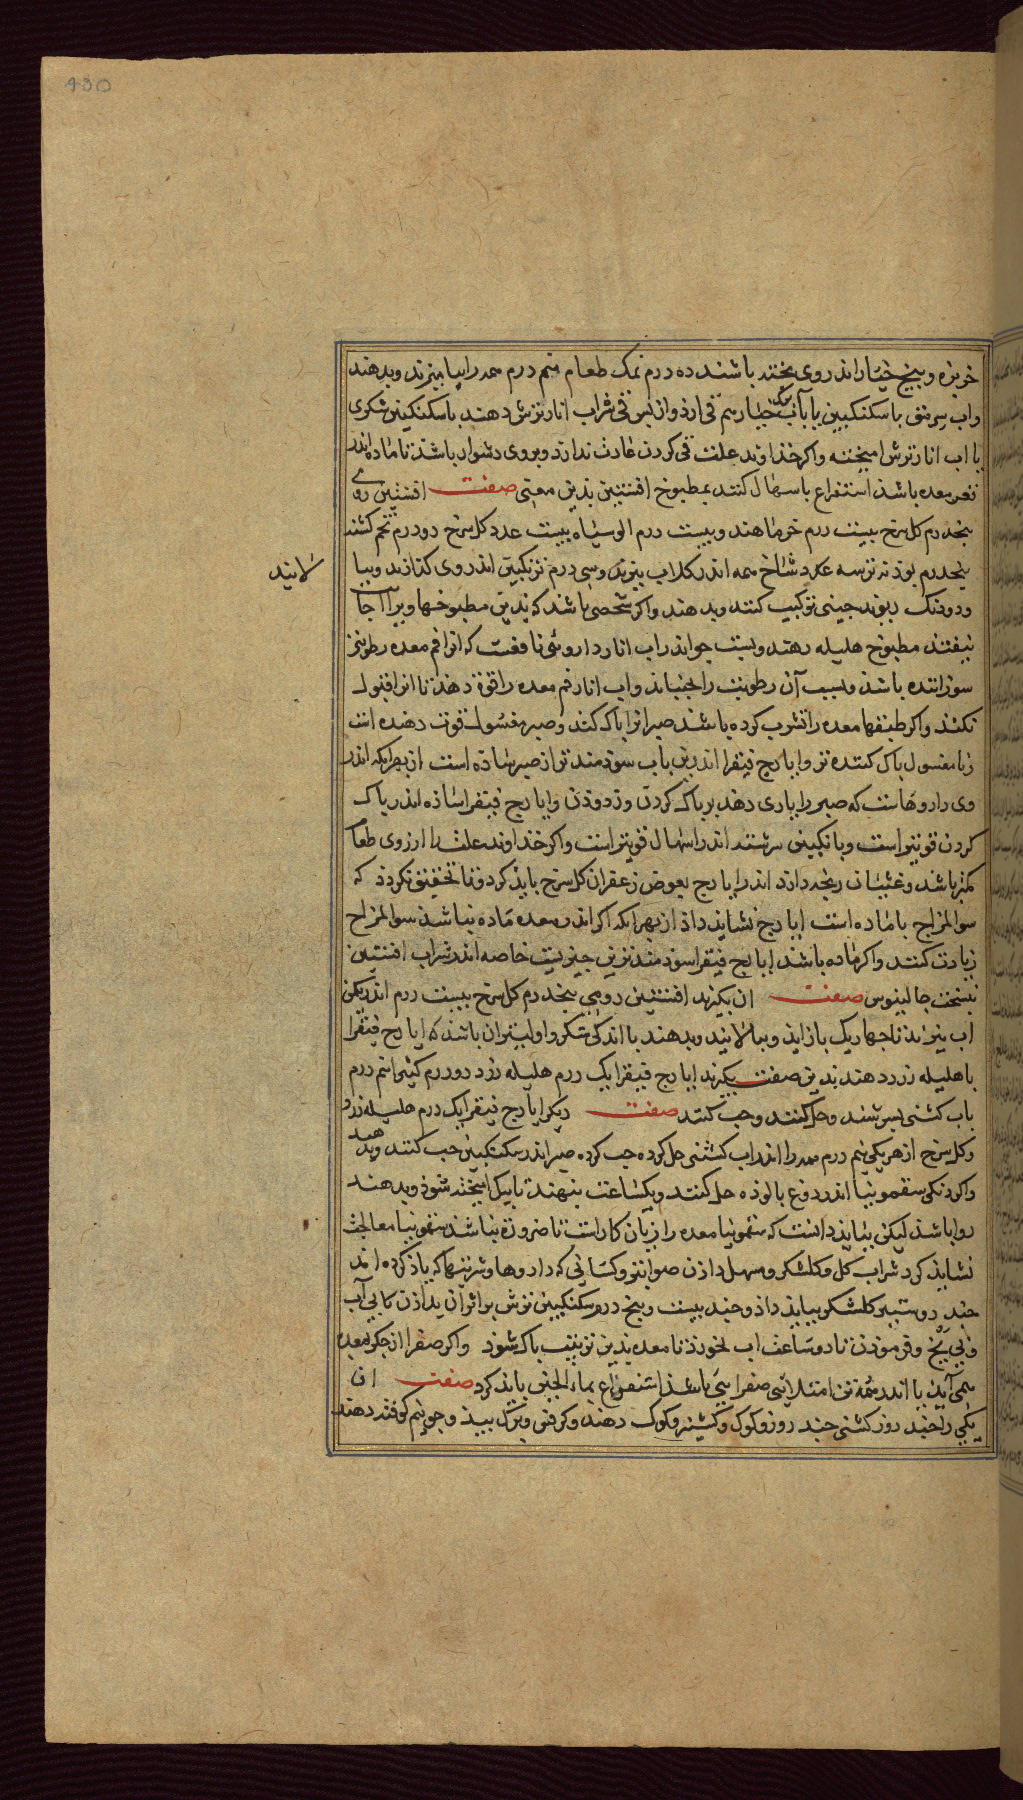 430
خربزه و بیخ خیار اندر وی پخته باشند ده درم نمک طعام نیم درم همه را بیامیزند و بدهند
و اب سرمق با سکنکبین یا باب خیار هم قی ارذ و از پس قی شراب انار ترش دهند با سکنکبین شکری
با اب انار ترش امیخته و اکر خذاوند علت قی کردن عادت ندارد و بروی دشوار باشذ تا ماده اندر
قعر معده باشذ استفراغ باسهال کنند بمطبوخ افسنتین بذین معنی صفت افسنتین روی
پنجدرم کل سرخ بیست درم خرما هند و بیست درم الو سیاه بیست عدد کل سرخ دو درم تخم کشنه
پنجدرم بوذنه تر سه عدد شاخ همه اندر کلاب بپزند و سی درم ترنکبین اندر وی کذازند و بپا
لایند
و دو دنک ریوند جینی ترکیب کنند و بدهند و اکر شخصی باشذ که بذین مطبوخها ویرا اجابت
نیفتد مطبوخ هلیله دهند و پست جو اندر اب انار داروئی نافعست که انرا فم معده رطوبتی
سوزاننده باشذ و پست آن رطوبت را بجنباند و اب انار فم معده را قوة دهذ تا انرا قبول
نکند و اکر طبقها معده را تشرب کرده باشذ صبر انرا باک کند و صبر مغسول قوت دهنده است
و نا مغسول باک کننده تر و ایارج فیقرا اندرین باب سوذمندتر از صبر ساده است از بهر انکه اندر
وی داروهاست که صبر را یاری دهد بر باک کردن و زدودن و ایارج فیقرا ساذه اندر باک
کردن قویتر است و بانکبین سرشته اندر اسهال قویتر است و اکر خذاوند علت را ارزوی طعام
کمتر باشذ و غثیان رنجه دارد اندر ایارج بعوض زعفران کل سرخ بایذ کرد و تا تحقیق نکردد که
سوالمزاج با ماده است ایارج نشایذ داد از بهر انکه اکر اندر معده ماده نباشذ سوالمزاج
زیادت کند و اکر ماده باشذ ایارج فیقرا سوذمندترین جیزیست خاصه اندر شراب افسنتین
بنسخت جالینوس صفت ان بکیرند افسنتین رومی پنجدرم کل سرخ بیست درم اندر یکمن
اب بپزند تا بجهاریک باز ایذ و بپالایند و بدهند با اندکی شکر و اولیتر ان باشذ که ایارج فیقرا
با هلیله زرد دهند بدین صفت بکیرند ایارج فیقرا یک درم هلیله زرد دو درم کثیرا نیم درم
باب کشنی بسرشند و حل کنند و حب کنند صفت دیکر ایارج فیقرا یک درم هلیله زرد
و کل سرخ از هر یکی نیم درم همه را اندر اب کشنی حل کرده حب کرده صبر اندر سکنکبین حب کنند و بدهند
و اکر دنکی سقمونیا اندر دوغ پالوذه حل کنند و یکساعت بنهند تا نیک امیخته شوذ و بدهند
روا باشذ لیکن بباید دانست که سقمونیا معده را زیان کار است تا ضرورة نباشذ بسقمونیا معالجت
نشایذ کرد شراب کل و کلشکر مسهل دادن صوابتر و کسانی که داروها و شربتها که یاذ کرده اند
جند روز ستبر کلشکر ببایذ داذ و جند بیست و پنج درم سکنکبین ترش بر اثر آن بدادن کابی آب
و بی یخ و فرمودن تا دو ساعت اب نخورذ تا معده بذین ترتیب باک شوذ و اکر صفرا از جکر بمعده
همی آیذ یا اندر همه تن امتلائی صفرایی باشذ استفراغ بماء الجبن بایذ کرد صفت ان
یکی را جند روز کشنی جند روز و کوک و کشنیز و کوک دهند و کرفس و برک بیذ و جو نیم کوفته دهند